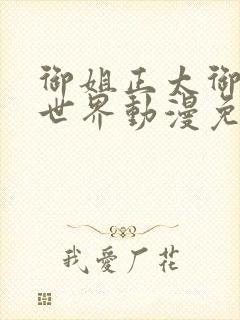 御姐正太御
世界動漫免
我愛厂花